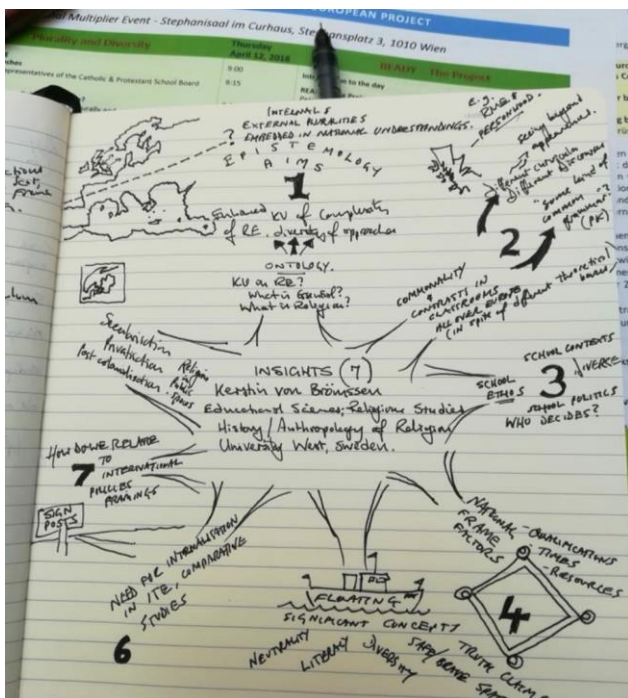 EUROPEAN PROJECT
Multiplier Event - Stephanisaal im Curhaus, Stephansplatz 3, 1010 Wien
Plurality and Diversity
Thursday
April 12, 2018
READY The Project
representatives of the Catholic & Protestant School Board
9:00
9:15
to the day
INTERNAL &
EXTERNAL PLURALITIES
? EMBEDDED IN NATIONAL UNDERSTANDINGS.
EPISTEMOLOGY
AIMS
1
Enhanced KU of Complexity
of RE. diversity of approaches
ONTOLOGY.
KU on RE?
What is General?
What is Religion?
e.g.
RULES
PERSONHOOD.
seeing beyond
appearances.
different curricula
different discourses
"some kind of
common
grammar"?
(PK)
2
COMMONALITY
&
CONTRASTS IN
CLASSROOMS
ALL OVER EUROPE
(IN spite of different theoretical
bases)
Secularisation
Privatisation
Post colonialisation.
Religion
in
Public
spaces
INSIGHTS (7)
Kerstin von Brömssen
Educational Science; Religious Studies
History/Anthropology of Religion
University West, Sweden.
SCHOOL CONTEXTS
DIVERSE
SCHOOL
ETHOS
3
SCHOOL POLITICS
WHO DECIDES?
HOW DO WE RELATE
TO
INTERNATIONAL
POLICIES
FRAMINGS
7
SIGN
POSTS
NEED FOR INTERNALISATION
IN ITE, COMPARATIVE
STUDIES
6
FLOATING
SIGNIFICANT CONCEPTS
NEUTRALITY
LITERACY
DIVERSITY
SAFE/BRAVE
TRUTH CLAIM
NATIONAL
FRAME
FACTORS
- QUALIFICATIONS
- TIMES
- RESOURCES
4